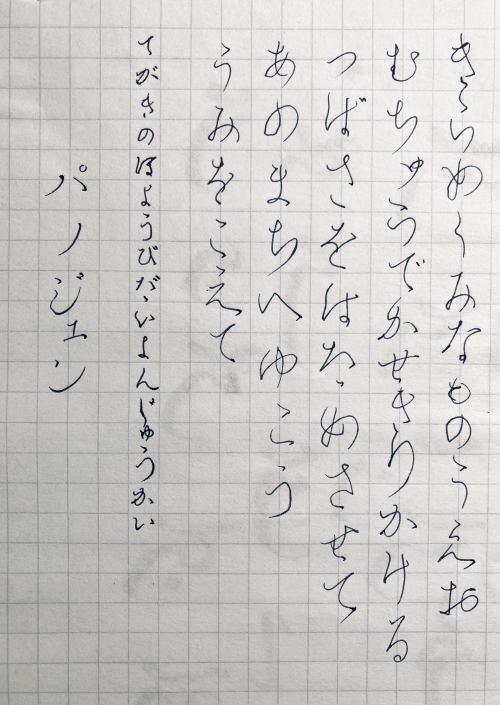 きらめくみなものうえお
むちゅうでかぜきりかける
つばさをはためさせて
あのまちへゆこう
うみをこえて
てがきのほようびだいよんじゅうかい
パノジェン